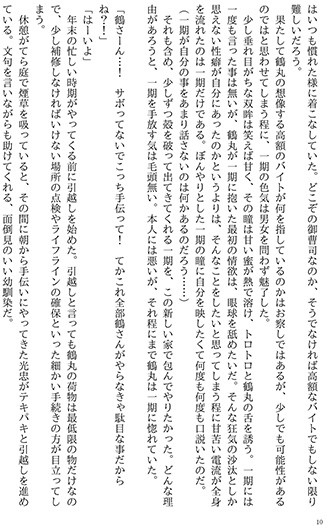 はいつも慣れた様に着こなしていた。どこぞの御曹司なのか、そうでなければ高額なバイトでもしない限り
難しいだろう。
果たして鶴丸の想像する高額のバイトが何を指しているのかはお察しではあるが、少しでも可能性がある
のではと思わせてしまう程に、一期の色気は男女を問わず魅了した。
少し垂れ目がちな双眸は笑えば甘く、その瞳は甘い蜜が熱で溶け、トロトロと鶴丸の舌を誘う。一期には
一度も言った事は無いが、鶴丸が一期に抱いた最初の情欲は、眼球を舐めたいだ。そんな狂気の沙汰としか
思えない性癖が自分にあったのかというよりは、そんなことをしたいと思ってしまう程に甘苦い電流が全身
を流れたのは一期だけである。ぼんやりとした一期の瞳に自分を映したくて何度も何度も口説いたのだ。
(一期が自分の事をあまり話さないのは何かあるのだろう……)
それも含め、少しずつ殻を破って出てきてくれる一期を、この新しい家で包んでやりたかった。どんな理
由があろうと、一期を手放す気は毛頭無い。本人には悪いが、それ程にまで鶴丸は一期に惚れていた。
「鶴さーん…！　サボってないでこっち手伝って！　てかこれ全部鶴さんがやらなきゃ駄目な事だから
ね？！」
「はーいよ」
年末の忙しい時期がやってくる前に引越しを始めた。引越しと言っても鶴丸の荷物は最低限の物だけなの
で、少し補修しなければいけない場所の点検やライフラインの確保といった細かい手続きの方が目立ってし
まう。
休憩がてら庭で煙草を吸っていると、その間に朝から手伝いにやってきた光忠がテキパキと引越しを進め
ている。文句を言いながらも助けてくれる、面倒見のいい幼馴染だ。
10